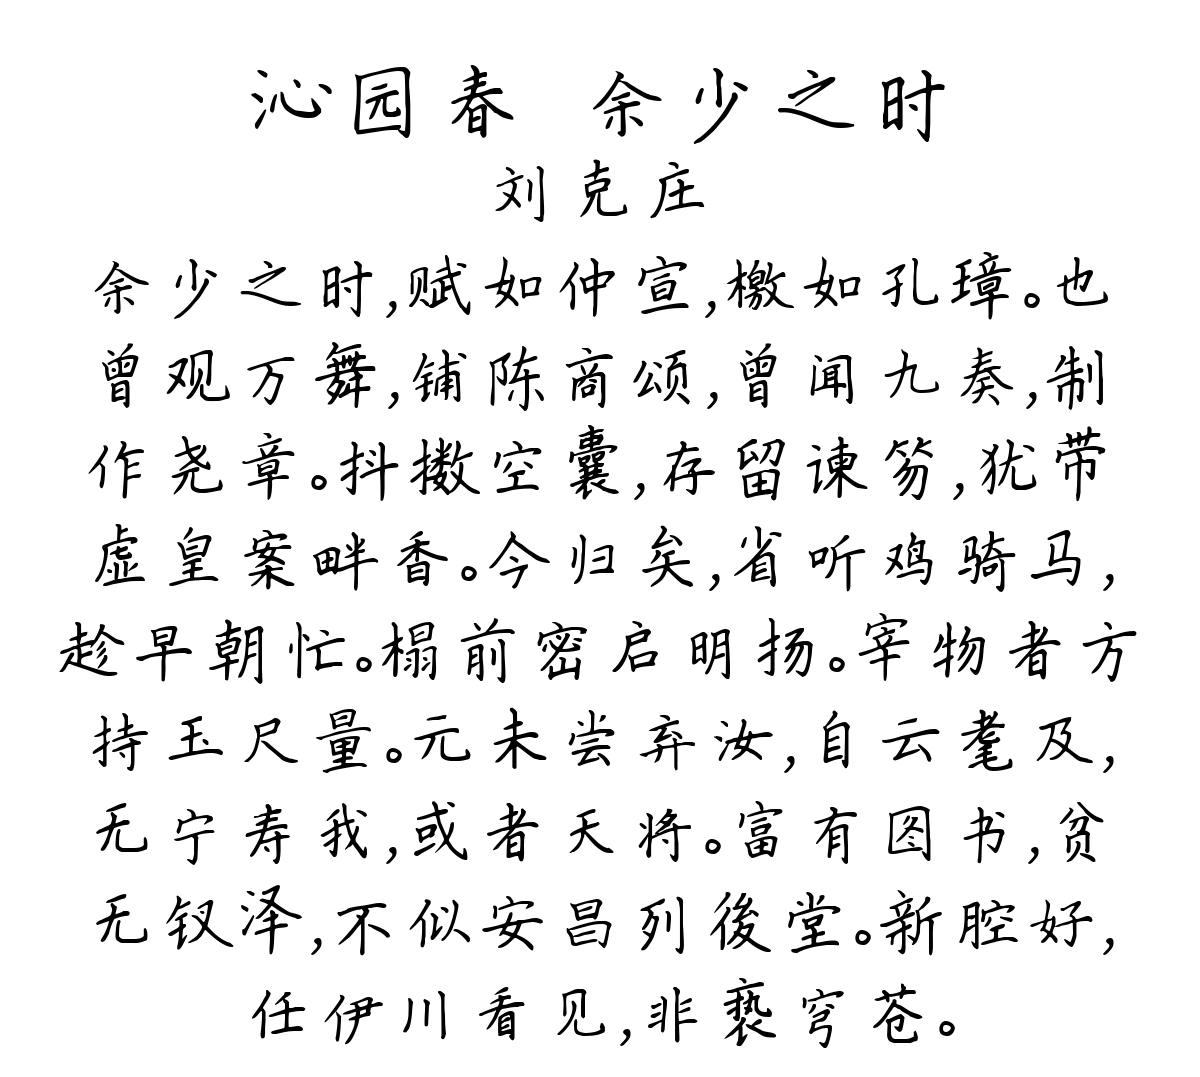 沁园春 余少之时
刘克庄
余少之时,赋如仲宣,檄如孔璋。也
曾观万舞,铺陈商颂,曾闻九奏,制
作尧章。抖擞空囊,存留谏笏,犹带
虚皇案畔香。今归矣,省听鸡骑马,
趁早朝忙。榻前密启明扬。宰物者方
持玉尺量。元未尝弃汝,自云耄及,
无宁寿我,或者天将。富有图书,贫
无钗泽,不似安昌列後堂。新腔好,
任伊川看见,非亵穹苍。